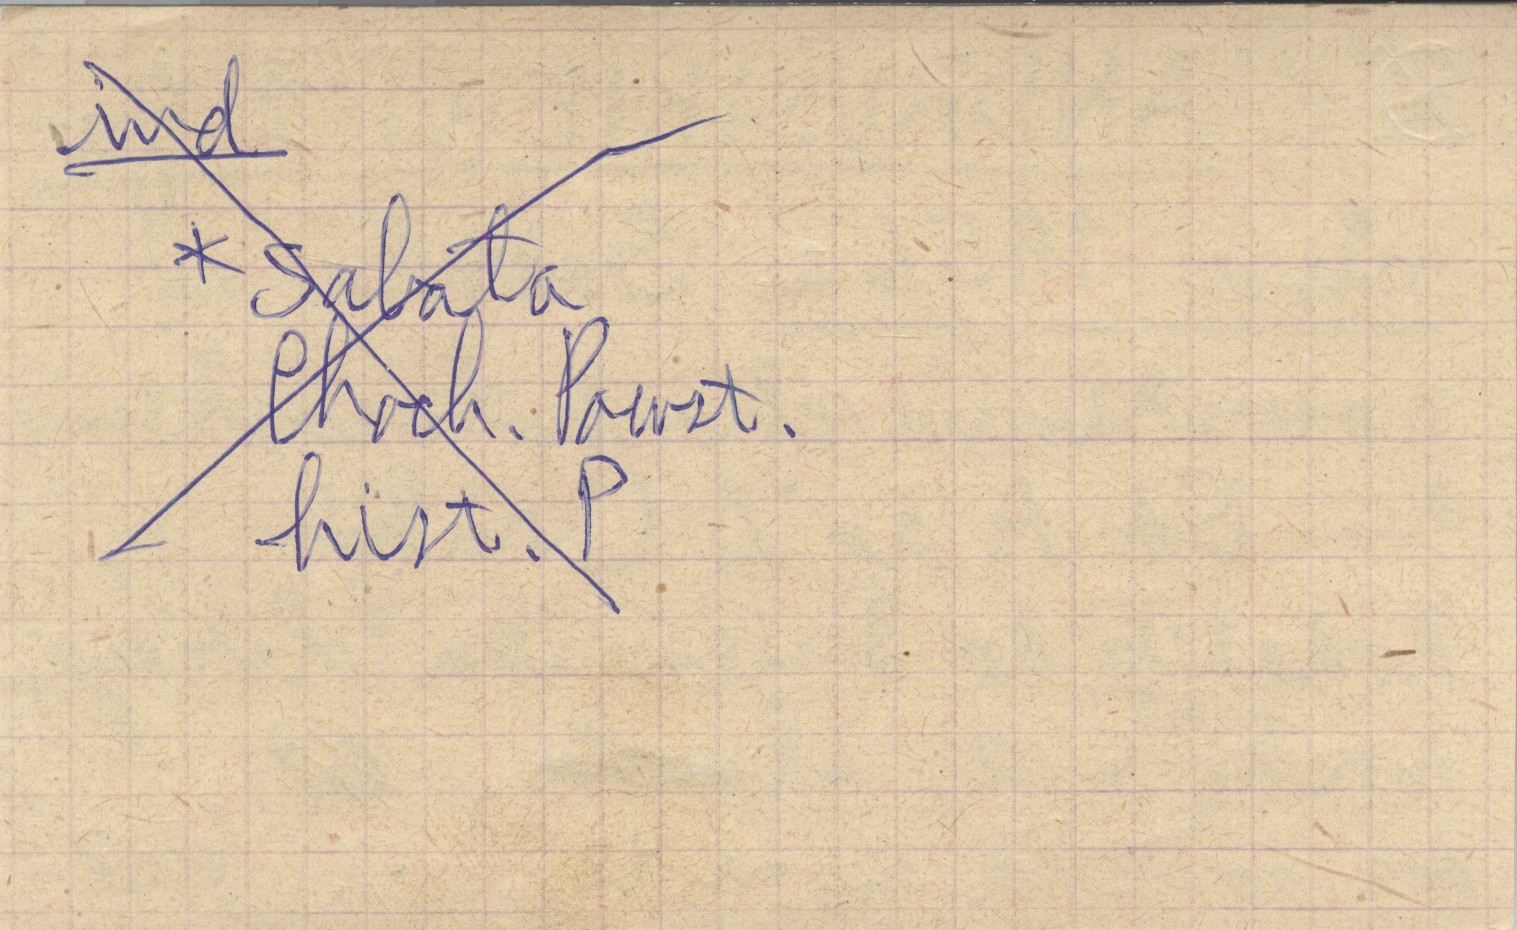 ind
* Sabata
Choch. Powst.
hist. P